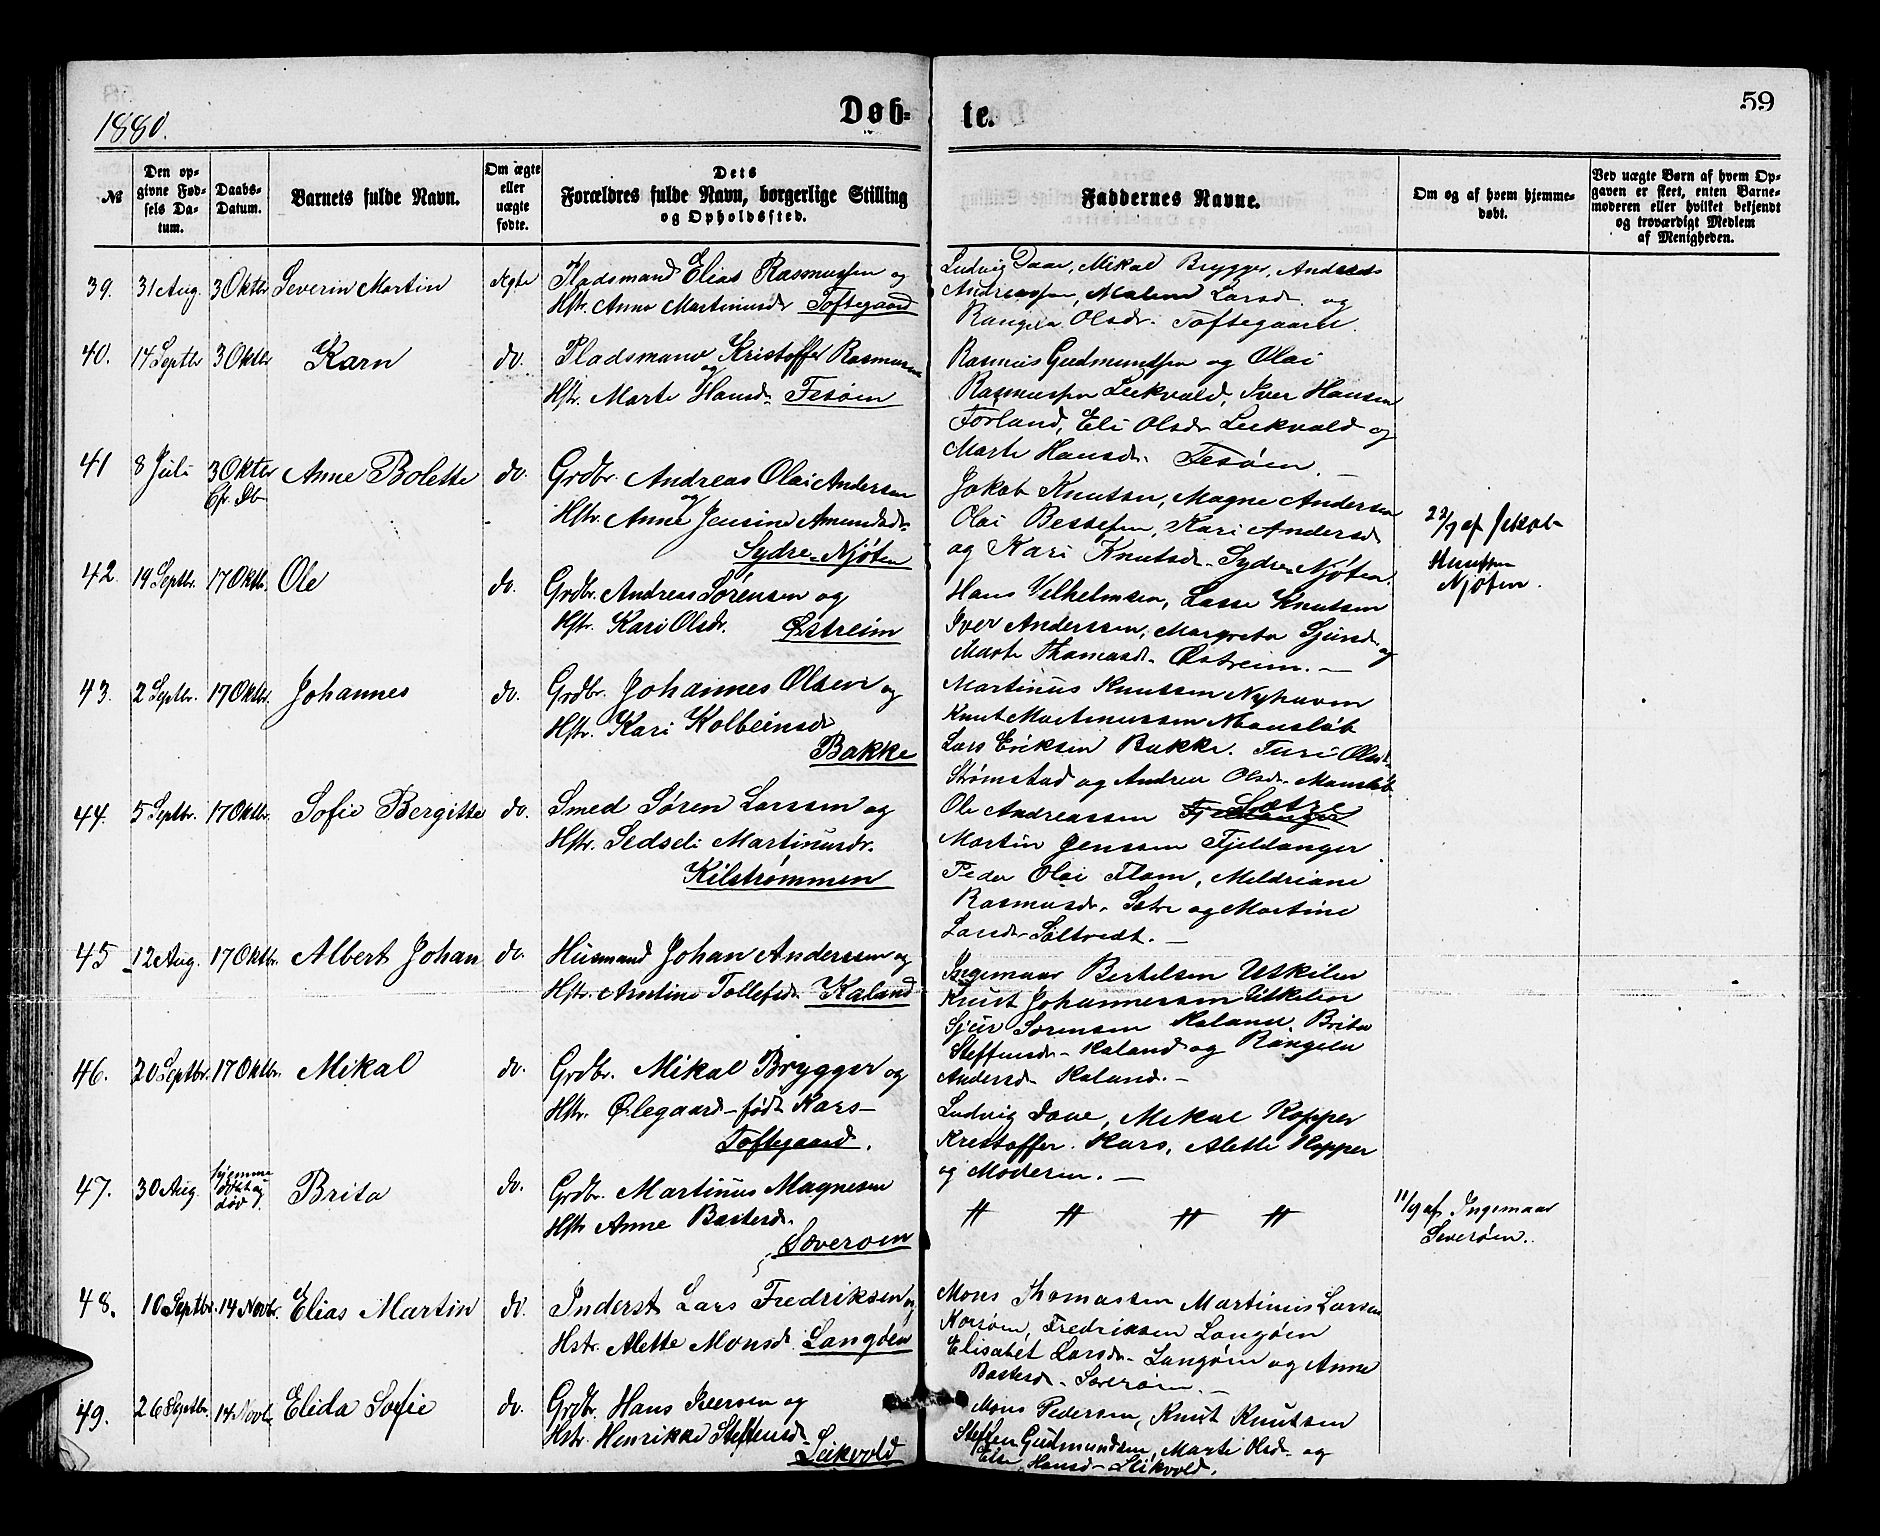 1880.
Døb-
te.
59
№
Den op-
givne Fød-
sels Da-
tum.
Daabs-
Datum.
Barnets fulde Navn.
Om ægte
eller
uægte
fødte.
Dets
Forældres fulde Navn, borgerlige Stilling
og Opholdssted.
Faddernes Navne.
Om og af hvem hjemme-
døbt.
Ved uægte Børn af hvem Op-
gaven er skeet, enten Barne-
moderen eller hvilket bekjendt
og troværdigt Medlem
af Menigheden.
39. 31 Aug. 3 Oktbr Severin Martin Ægte Pladsmand Elias Rasmussen og
Hstr. Anna Martinusdr Toftegaard
Ludvig Daae, Mikal Brygger, Andreas
Andreassen, Malene Larsdr. og
Rangela Olsdr. Toftegaard.
40. 14 Septbr 3 Oktbr Karn do. Pladsmand Kristoffer Rasmussen
og
Hstr. Marte Hansdr. Fesøen
Rasmus Gudmundsen og Olai
Rasmussen Leikvold, Iver Hansen
Førland, Eli Olsdr Leikvold og
Marte Hansdr. Fesøen. —
41 8 Juli 3 Oktbr Anne Bolette do. Grdbr. Andreas Olai Andersen
Cfr. Db. og
Hstr. Anne Jensine Amundsdr.
Sydre-Njøten
Jokob Knutsen, Magne Andersen
Olai Bessesen, Kari Andersd
og Kari Knutsdr. Sydre Njøten.
22/7 af Jakob
Knutsen
Njøten.
42. 19 Septbr. 17 Oktb. Ole do. Grdbr. Andreas Sørensen og
Hstr. Kari Olsdr. Østreim
Hans Velhelmsen, Lasse Knutsen
Iver Anderssen, Margreta Sjursd. og
Marte Thomasdr. Østreim. —
43. 2 Septbr. 17 Oktbr. Johannes do. Grdbr. Johannes Olsen og
Hstr. Kari Kolbeinsdr
Bakke
Martinus Knutssen Nyhavn
Knut Martinussen Mansløb
Lars Eriksen Bakke. Turi Olsdr.
Strømstad og Andrea Olsdr. Mansløb.
44. 5 Septbr. 17 Oktbr. Sofie Bergitte do. Smed Søren Larssen og
Hstr. Sedseli Martinusdr.
Kilstrømmen
Ole Andreassen Sætre
Martin Jenssen Fjeldanger
Peder Olai Flam, Meldriane
Rasmusdr. Sætre og Martine
Larsdr Søltvedt. —
45 12 Aug. 17 Oktbr. Albert Johan do. Husmand Johan Anderssen og
Hstr. Antine Tollefsdr. Kaland
Ingemaar Bertelsen Utkilen
Knut Johannessen Utkilen
Sjur Sørensen Kaland. Brita
Steffensdr. Kaland og Rangela
Andersd. Kaland. —
46. 20 Septbr. 17 Oktbr. Mikal do. Grdbr. Mikal Brygger og
Hstr. Ølegaard — født Kars —
Toftegaard.
Ludvig Daae, Mikal Kopper
Kristoffer Kars, Alette Kopper
og Moderen. —
47. 30 Aug. hjemme
døbt og
død. Brita do. Grdbr. Martinus Magnesen
Hstr Anne Bastersdr.
Sæverøen
11/9 af Ingemaar
Severøen.
48. 10 Septbr. 14 Novbr. Elias Martin do. Inderst Lars Fredriksen og
Hstr. Alette Monsdr. Langøen
Mons Thomassen Martinus Larsen
Korsøen, Fredriksen Langøen
Elisabet Larsdr. Langøen og Anne
Bastersdr. Sæverøen. —
49. 26 Septbr. 14 Novb. Elida Sofie do. Grdbr. Hans Iversen og
Hstr. Henrikke Steffensdr.
Leikvold
Mons Pedersen, Knut Knutsen
Steffen Gudmundsen, Marte Olsdr. og
Else Hansd. Leikvold.